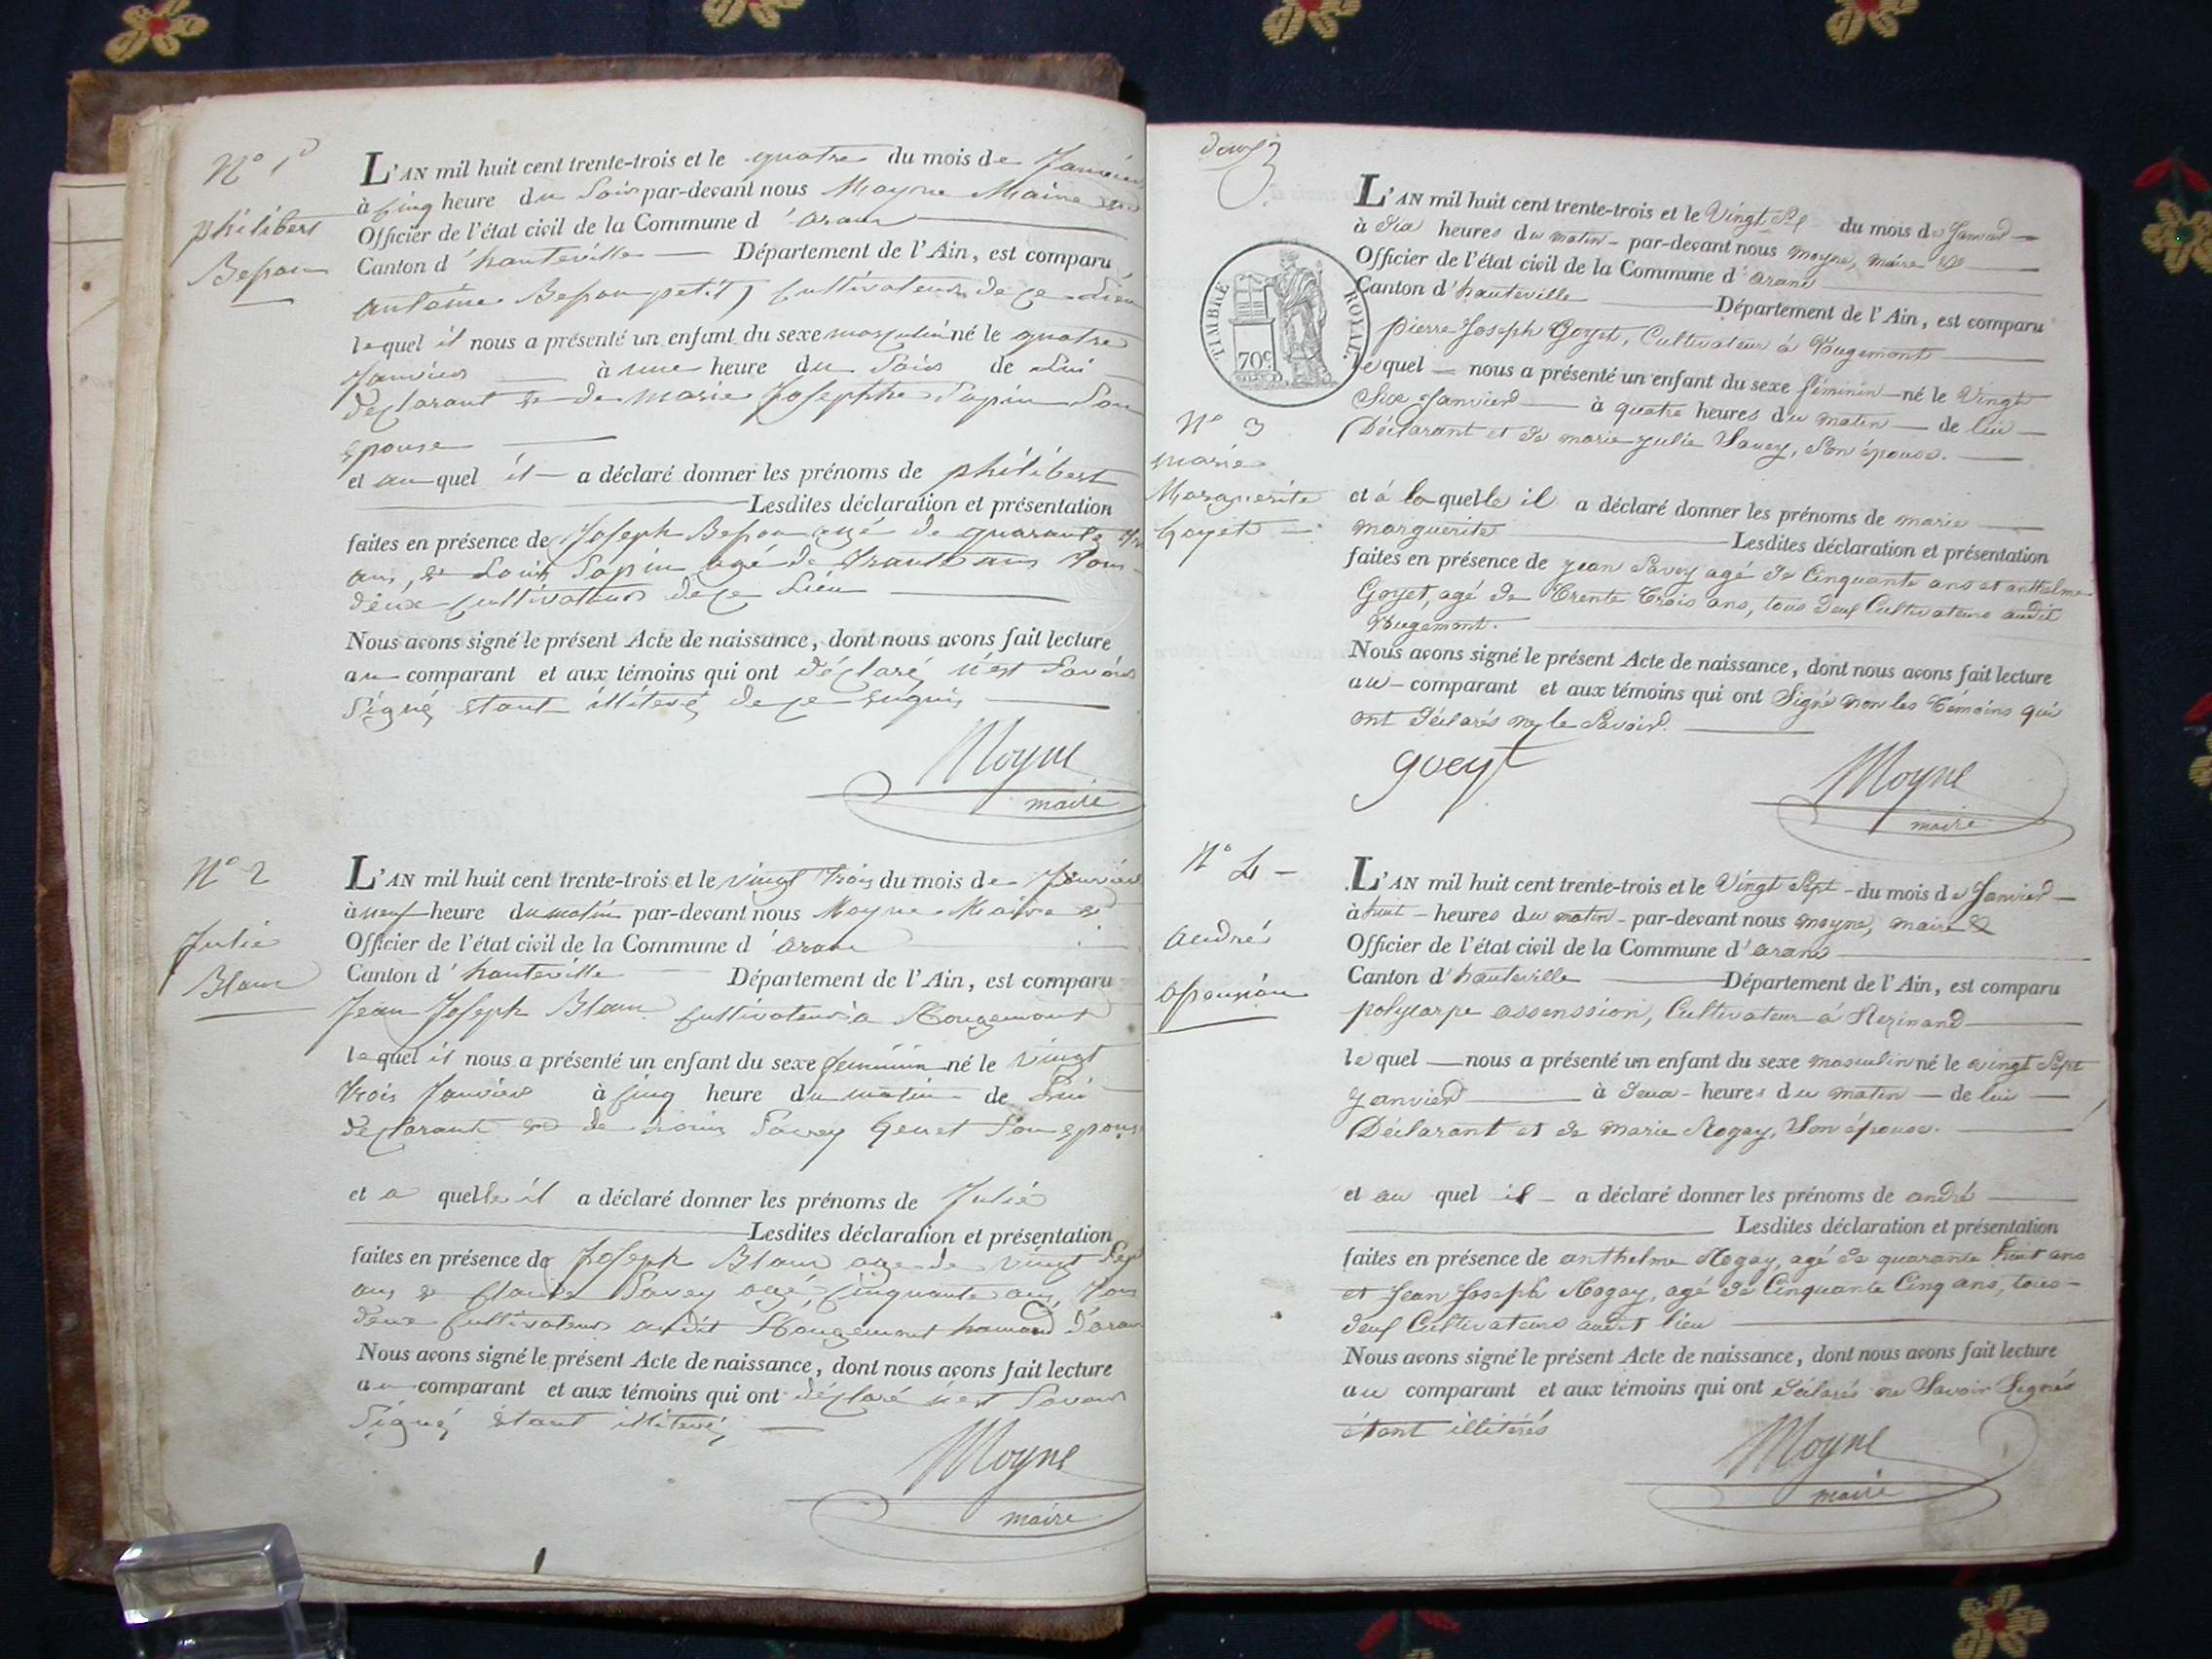 N° 1er
philibert
Besson
L'AN mil huit cent trente-trois et le quatre du mois de Janvier
à cinq heure du Soir par-devant nous Moyne Maire et
Officier de l'état civil de la Commune d'aran
Canton d'hauteville Département de l'Ain, est comparu
antoine Besson petit, Cultivateur de ce Lieu
lequel il nous a présenté un enfant du sexe masculin né le quatre
Janvier à une heure du Soir de Lui
declarant et de marie Josephte Sapin Son
epouse
et au quel il a déclaré donner les prénoms de philibert
Lesdites déclaration et présentation
faites en présence de Joseph Besson agé de quarante
ans, et Louis Sapin agé de trante ans Tous
deux cultivateurs de ce Lieu
Nous avons signé le présent Acte de naissance, dont nous avons fait lecture
au comparant et aux témoins qui ont déclaré n'est Savoir
Signé etant illiteré de ce enquis
Moyne
maire
N° 2
Julie
Blanc
L'AN mil huit cent trente-trois et le vingt trois du mois de Janvier
à neuf heure du matin par-devant nous Moyne Maire et
Officier de l'état civil de la Commune d'aran
Canton d'hauteville Département de l'Ain, est comparu
Jean Joseph Blanc cultivateur à Rougemont
lequel il nous a présenté un enfant du sexe feminin né le vingt
trois Janvier à cinq heure du matin de Lui
declarant et de Savey Genet Son epouse
et a quelle il a déclaré donner les prénoms de Julie
Lesdites déclaration et présentation
faites en présence de Joseph Blanc age de vingt Sept
ans et Claude Savey agé Cinquante ans Tous
deux Cultivateurs audit Rougemont hamaud D'aran
Nous avons signé le présent Acte de naissance, dont nous avons fait lecture
au comparant et aux témoins qui ont déclaré n'est Savoir
Signé étant illiteré
Moyne
maire
deux
TIMBRE ROYAL.
70c
N° 3
marie
Marguerite
Goyet
L'AN mil huit cent trente-trois et le Vingt Sept du mois de Janvier
à dix heures du matin par-devant nous moyne, maire &
Officier de l'état civil de la Commune d'arand
Canton d'hauteville Département de l'Ain, est comparu
pierre Joseph Goyet, Cultivateur à Rougemont
lequel nous a présenté un enfant du sexe féminin né le Vingt
Six Janvier à quatre heures du matin de lui
Déclarant et de marie julie Savey, Son épouse.
et à laquelle il a déclaré donner les prénoms de marie
marguerite Lesdites déclaration et présentation
faites en présence de jean Savey agé de Cinquante ans et anthelme
Goyet, agé de Trente Trois ans, tous deux Cultivateurs audit
Rougemont.
Nous avons signé le présent Acte de naissance, dont nous avons fait lecture
au comparant et aux témoins qui ont Signé non les Témoins qui
ont déclarés ne le Savoir.
goeyt
Moyne
maire
N° 4
andré
assension
L'AN mil huit cent trente-trois et le Vingt Sept du mois de Janvier
à huit heures du matin par-devant nous moyne, maire &
Officier de l'état civil de la Commune d'arand
Canton d'hauteville Département de l'Ain, est comparu
polycarpe assenssion, Cultivateur à Rezinand
lequel nous a présenté un enfant du sexe masculin né le vingt Sept
janvier à deux heures du matin de lui
Déclarant et de marie Rogay, Son épouse.
et au quel il a déclaré donner les prénoms de andré
Lesdites déclaration et présentation
faites en présence de anthelme Rogay, agé de quarante huit ans
et Jean Joseph Rogay, agé de Cinquante Cinq ans, tous
deux Cultivateurs audit lieu
Nous avons signé le présent Acte de naissance, dont nous avons fait lecture
au comparant et aux témoins qui ont déclarés ne Savoir Signés
étant illitérés
Moyne
maire